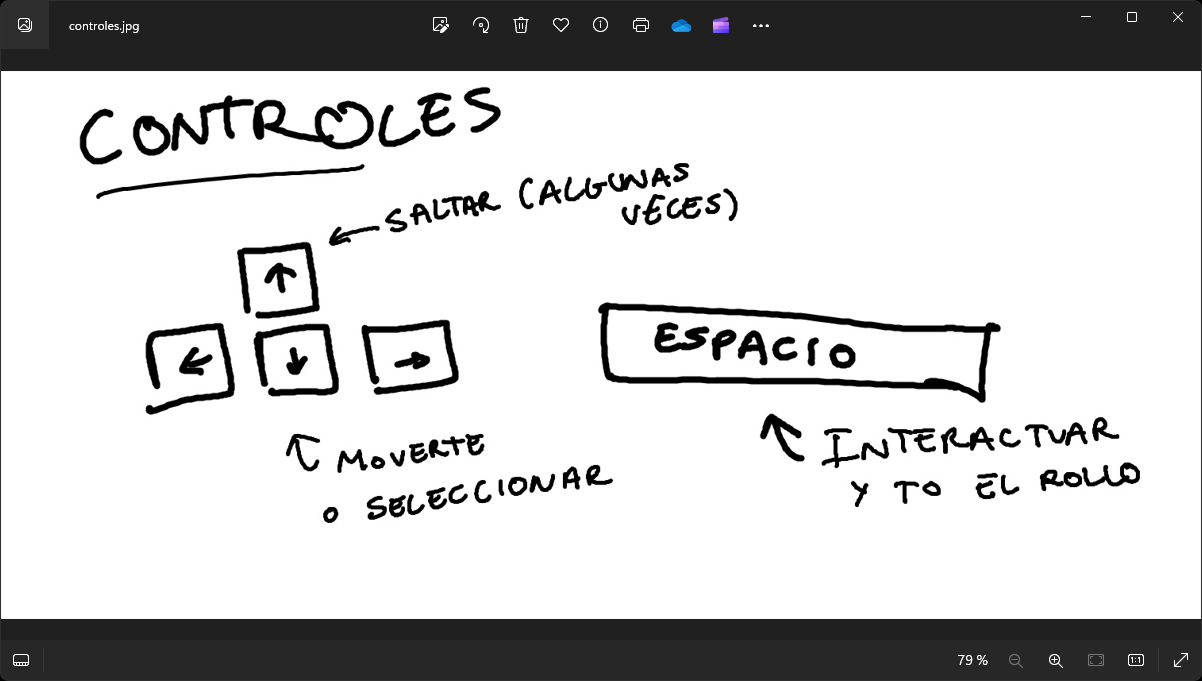 controles.jpg
CONTROLES
SALTAR (ALGUNAS
VECES)
ESPACIO
MOVERTE
O SELECCIONAR
INTERACTUAR
Y TO EL ROLLO
79 %
1:1